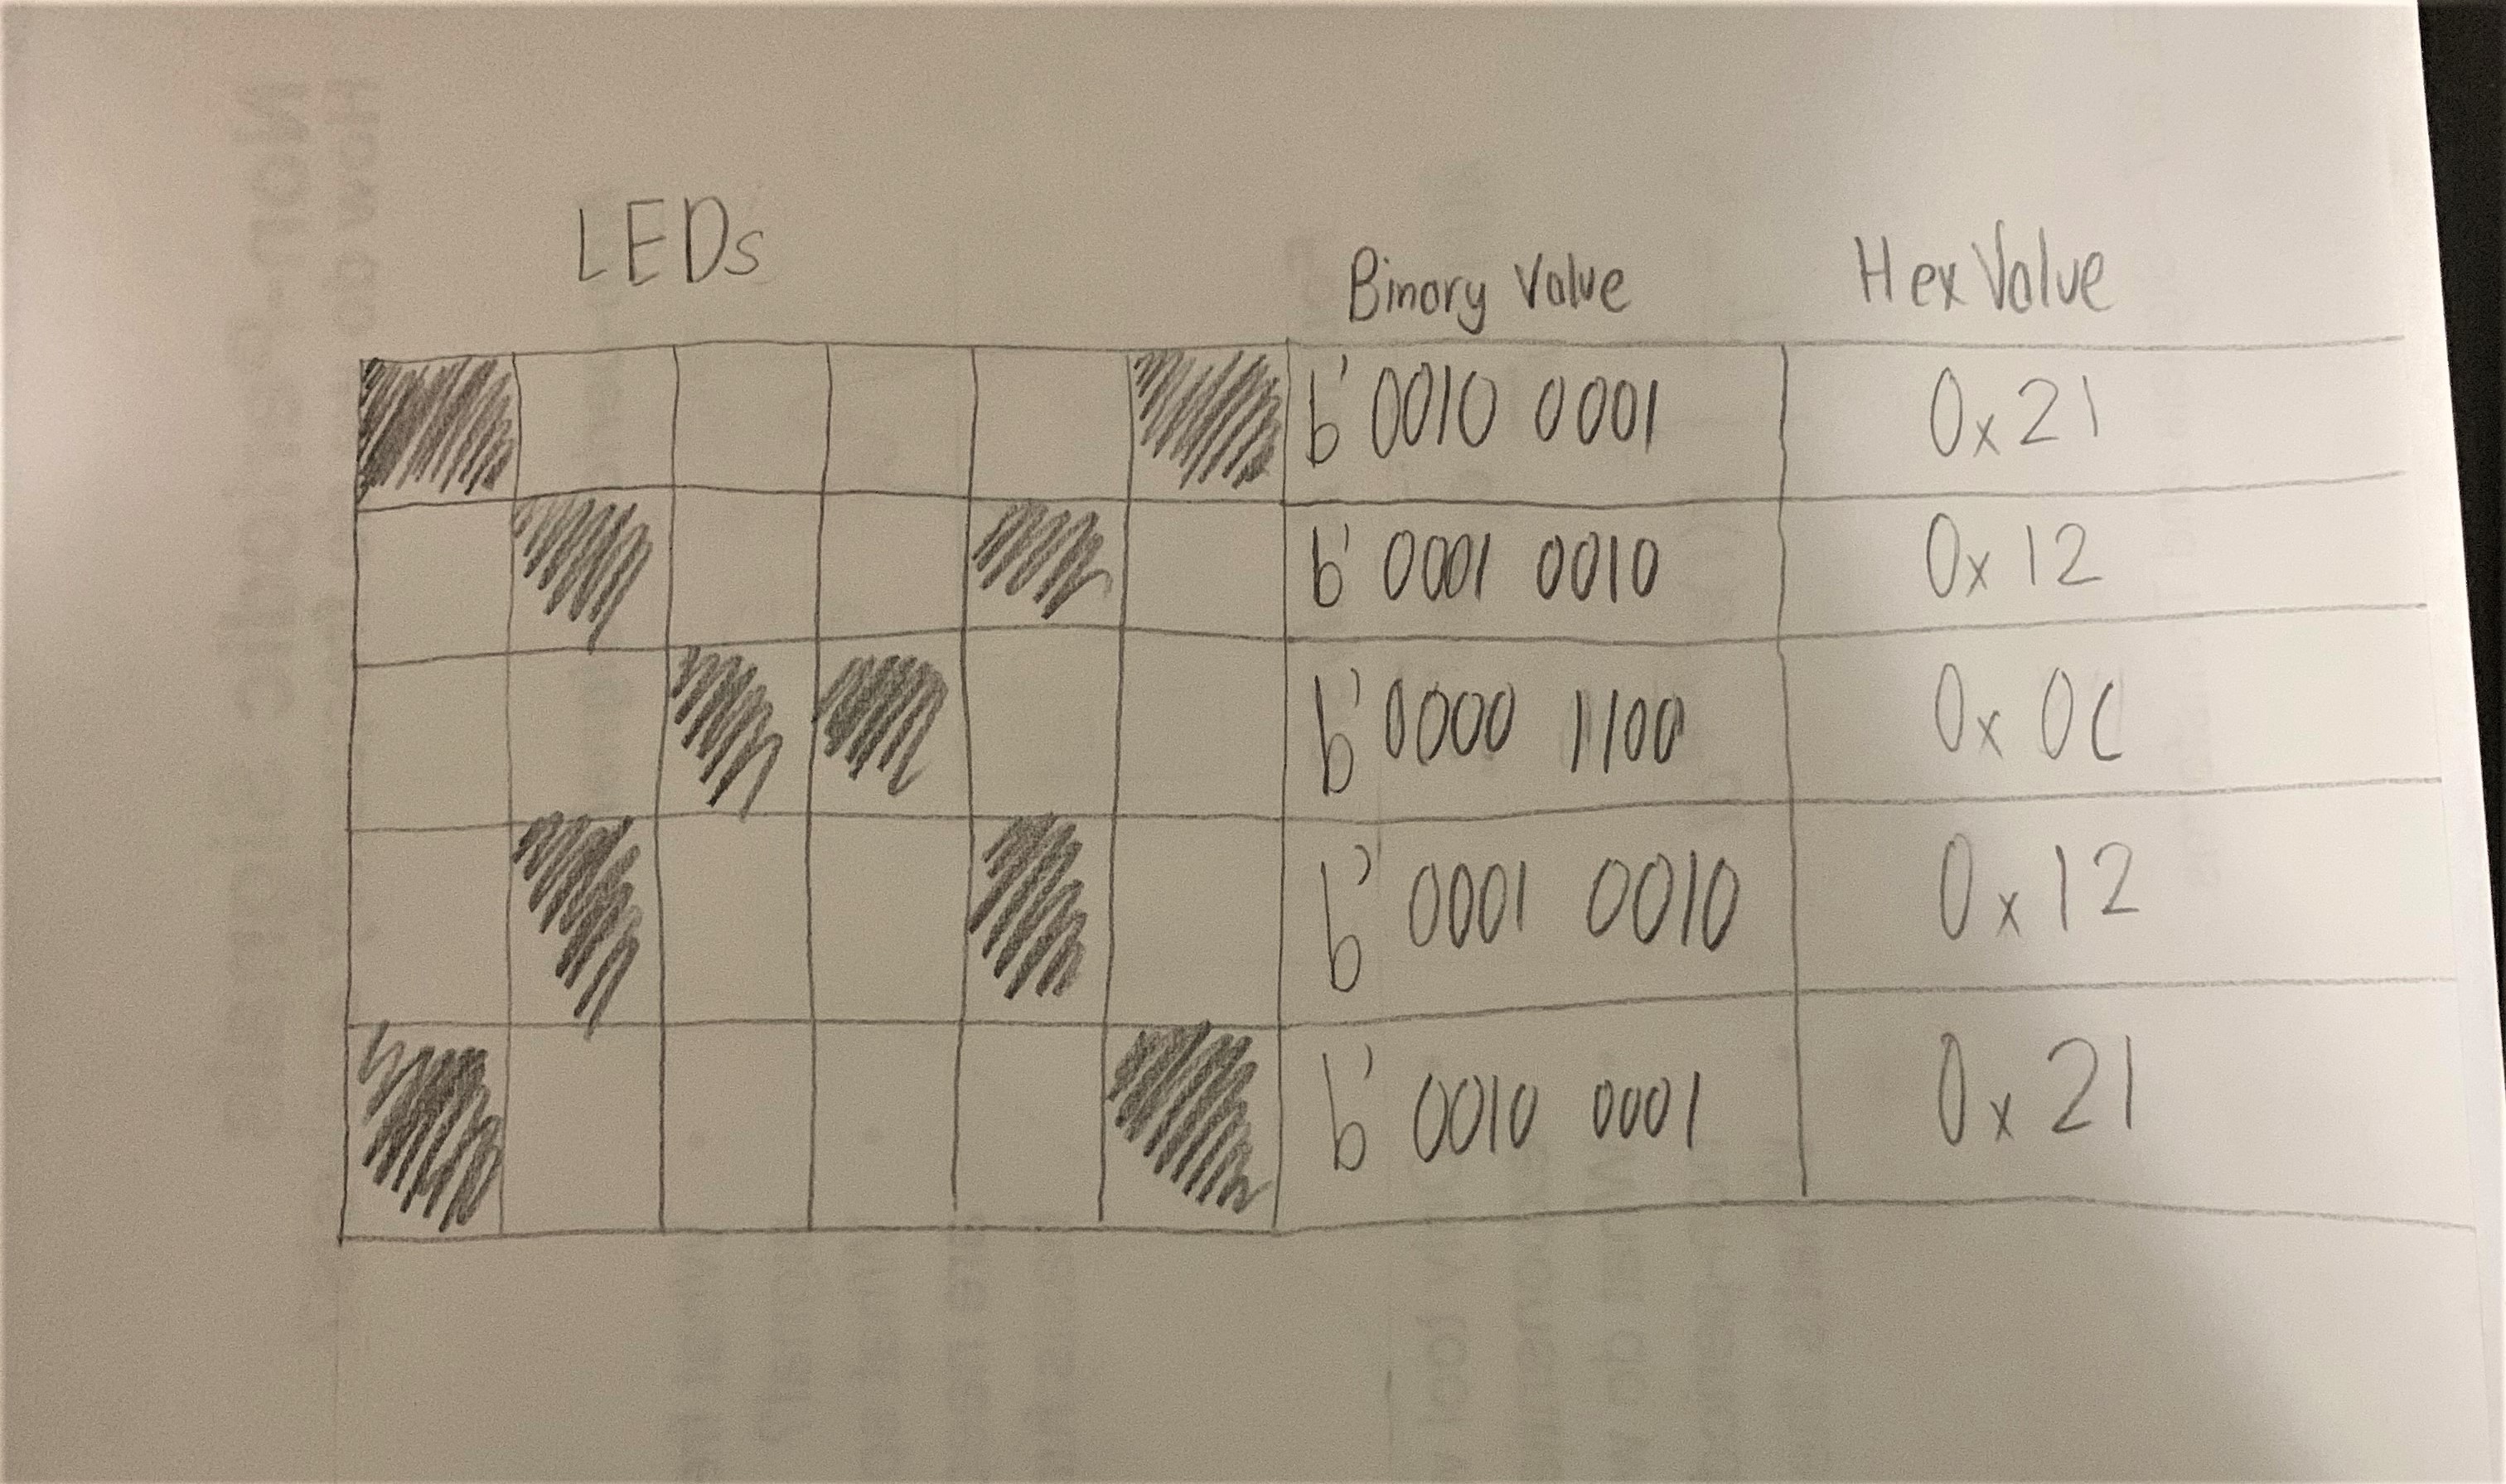 LEDs
Binary Value Hex Value
b' 0010 0001 0x21
b' 0001 0010 0x12
b' 0000 1100 0x0C
b' 0001 0010 0x12
b' 0010 0001 0x21